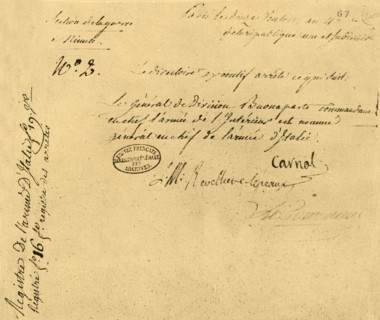 67
Paris le douze Ventose an 4e
de la république une et indivisible
Section de la guerre
et Minute
N° 2.
Le directoire exécutif arrête ce qui suit.
Le Général de Division Buonaparte commandant
en chef l'armée de l'Intérieur est nommé
général en chef de l'armée d'Italie.
Carnot
L. M. Revelliere-lepeaux
ARCHIVES
Registre de l'armée d'Italie
16
registre des arrêtés